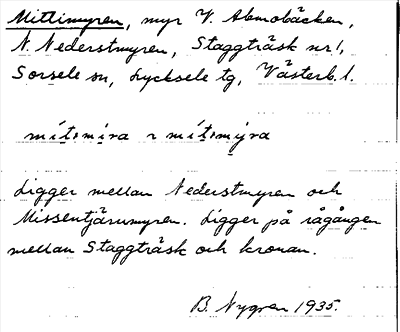 Mittimyren, myr V. Abmobäcken,
N. Nederstmyren, Staggträsk nr 1,
Sorsele sn, Lycksele tg, Västerb. l.
mítimira ~ mítimýra
Ligger mellan Nederstmyren och
Missentjärnmyren. Ligger på rågången
mellan Staggträsk och kronan.
B. Nygren 1935.